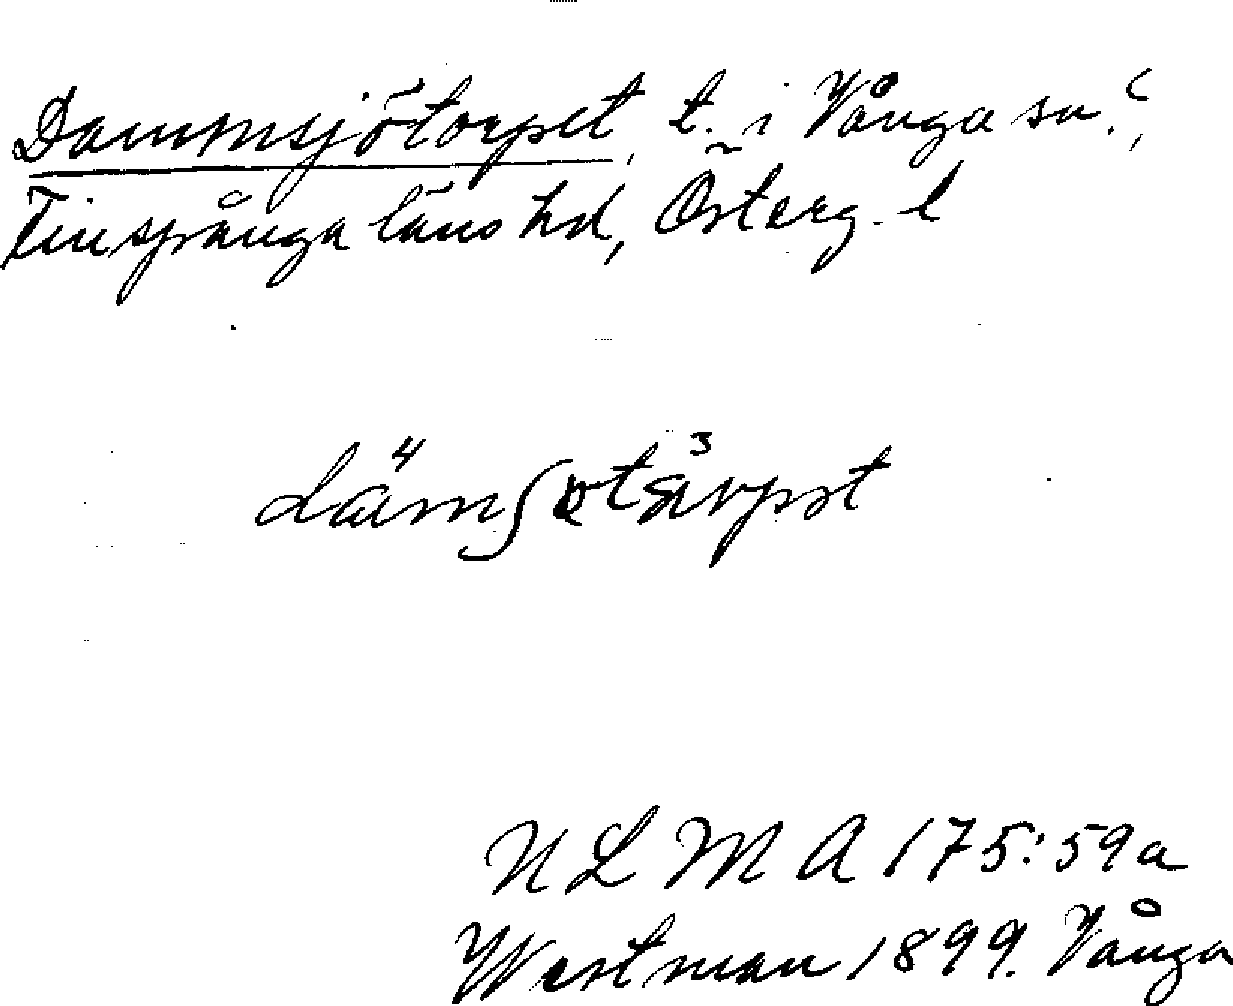 Dammsjötorpet, t. i Vånga sn.?,
Finspånga läns hd, Österg. l
NLMA 175:59a
Westman 1899. Vånga